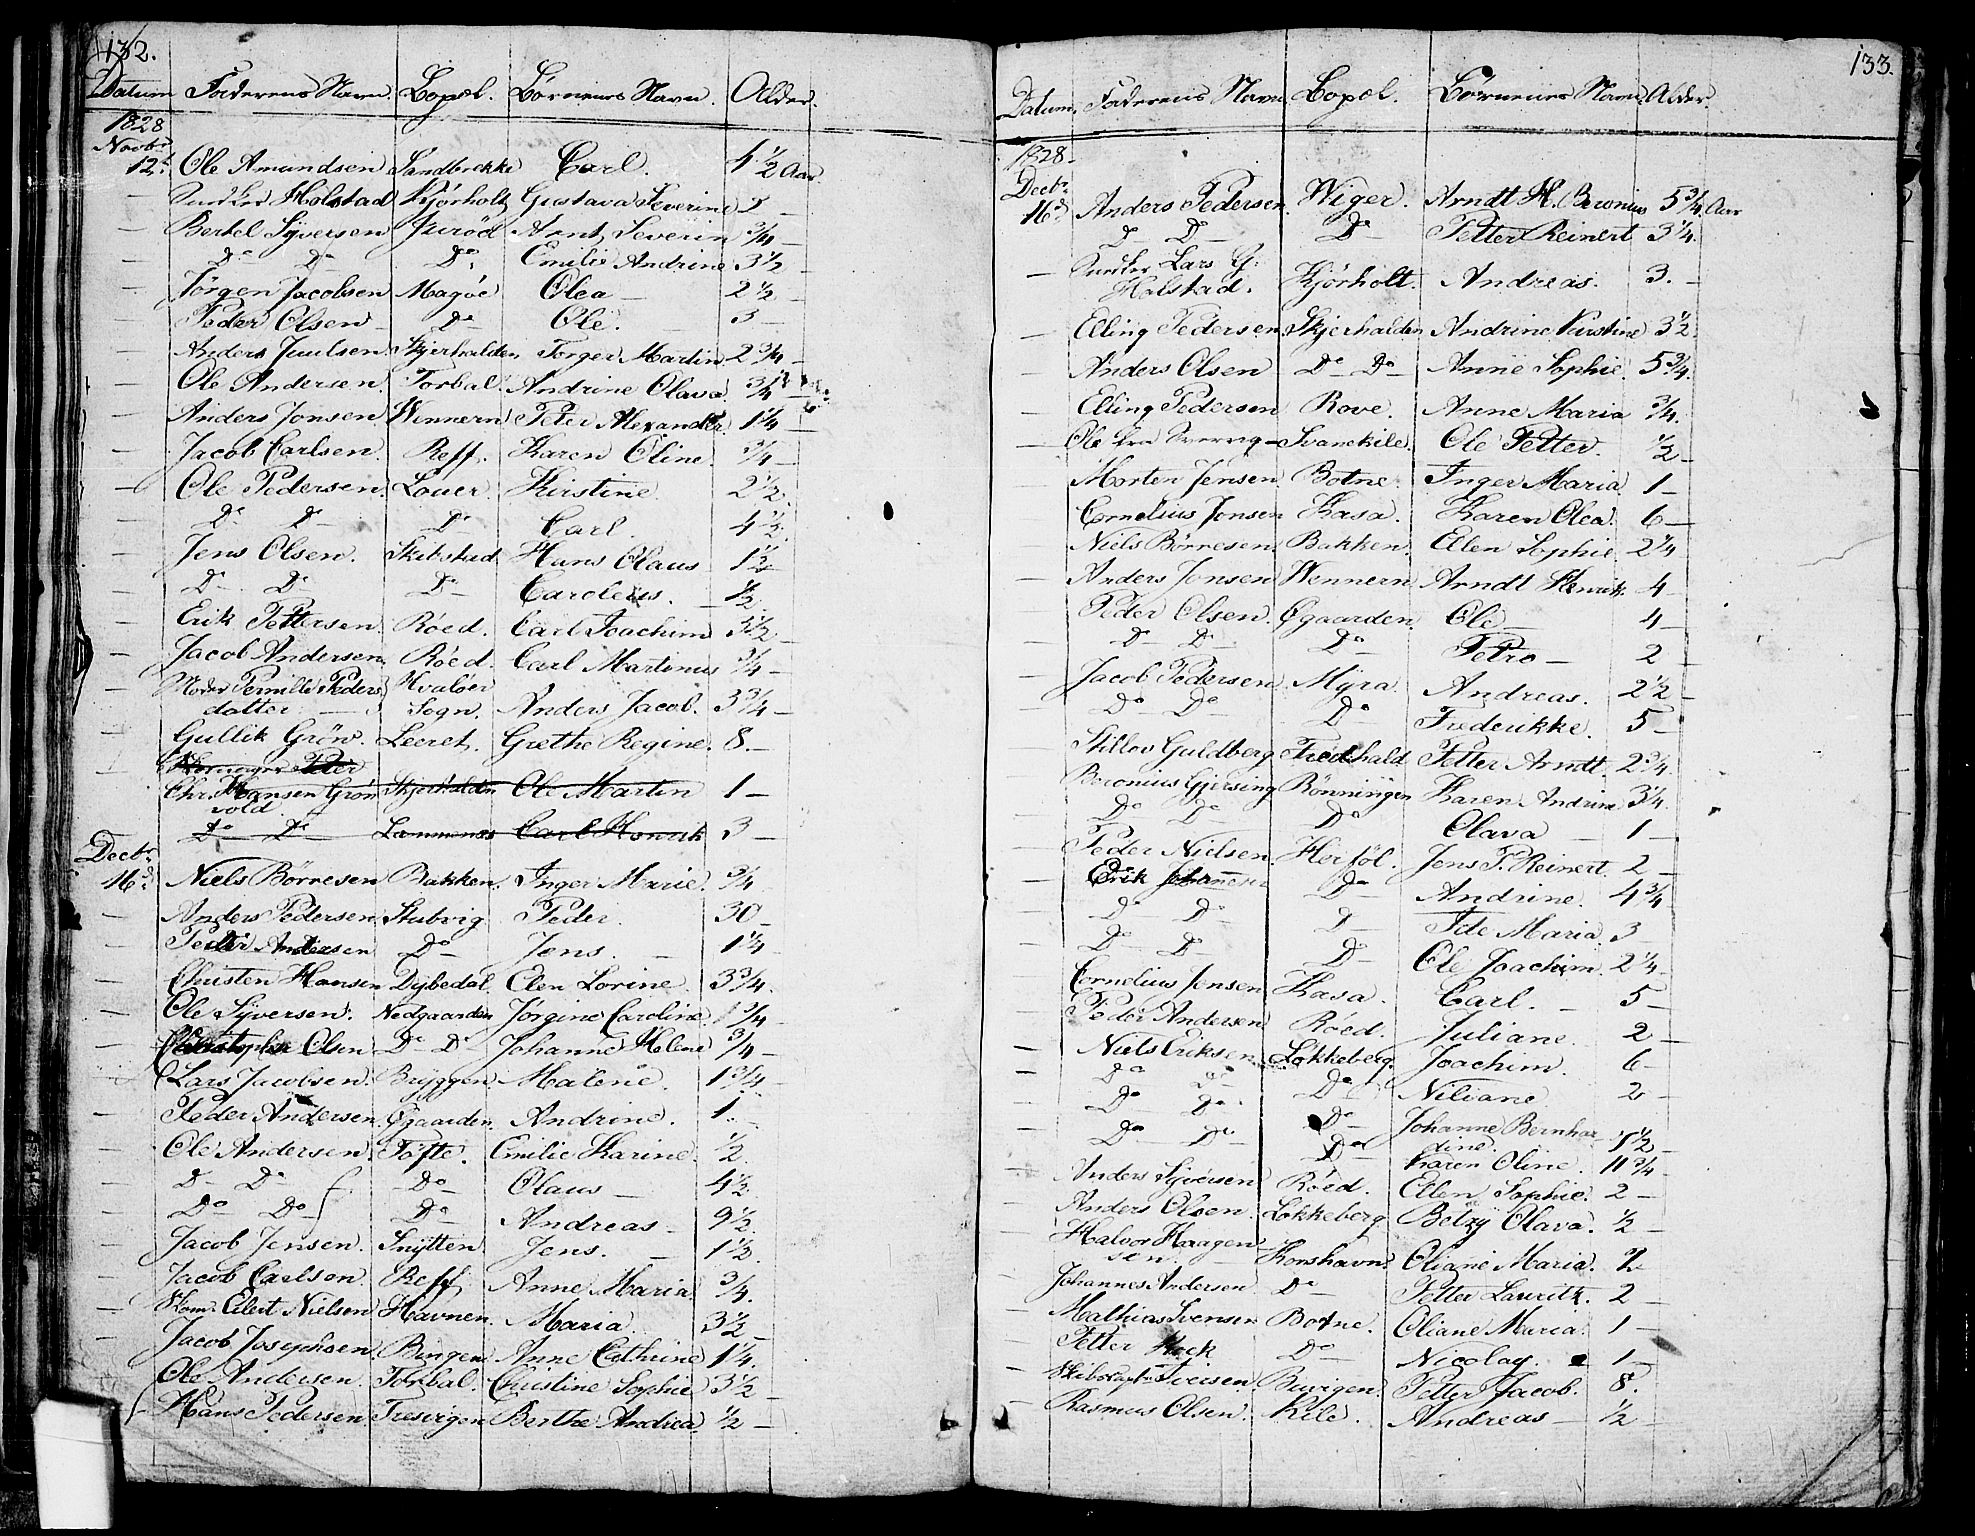 132.
Datum Faderens Navn. Bopæl. Börnenes Navn. Alder.
1828
Novbr
12t Ole Amundsen Sandbrekke Carl. 4 1/2 Aar.
— Holstad Kjörholt Gustava Severine 2 —
— Bertel Syversen Jurød Arnt Severin 3/4 —
— Do Do Do Emilie Andrine 3 1/2 —
— Jörgen Jacobsen Magöe Olea — 2 1/2 —
— Peder Olsen — Do Ole. 3 —
— Anders Juulsen Skjerhalden Torger Martin 2 3/4 —
— Ole Andersen Torbal Andrine Olava 3/4
— Anders Jonsen Wennern Peter Alexander. 1 1/4 —
— Jacob Carlsen Reff. Karen Oline. 3/4 —
— Ole Pedersen Löuer. Kirstine. 2 1/2
— Do Do Do Carl. 4 1/2
— Jens Olsen. Skibstad Hans Olaus 1 1/2
— Do Do Do Carolius. — 1/2.
— Erik Pettersen. Röed. Carl Joachim 3 1/2 —
— Jacob Andersen. Röed. Carl Martinus 3/4 —
— Moder Pernille Peders Hvaløer
datter — Sogn. Anders Jacob. 3 3/4 —
Gullik Grön. Leeret. Grethe Regine. 8. —
Peter
Chr. Hansen Grön Skjerhalden Ole Martin 1 —
vold.
Do Do Lammenes Carl Henrik 3 —
Decbr
16d. Niels Börresen Bakken. Inger Marie. 3/4
— Anders Pedersen Stubvig Peder. 30 —
— Peder Andersen Do Jens. — 1 1/4
— Christen Hansen Dybedal. Elen Lorine. 3 3/4.
— Ole Syversen. Nedgaarden Jörgine Caroline. 1 3/4 —
— Christopher Olsen Do Do Johanne Helene 3/4 —
— Lars Jacobsen. Bryggen. Malene. 1 3/4 —
— Peder Andersen. Øgaarden. Andrine. 1. —
— Ole Andersen. Töfte. Emilie Karine. 1/2
— Do Do Do Olaus — 4 1/2
— Do Do Do Andreas — 9 1/2
— Jacob Jensen. Snytten Jens. — 1 1/2.
— Jacob Carlsen. Reff. Anne Maria. 3/4.
— Skom. Eilert Nielsen Havnen. Maria. 3 1/2
— Jacob Josephsen. Bingen Anne Cathrine 1 1/4.
— Ole Andersen. Torbal. Christine Sophie 3 1/2 —
— Hans Pedersen. Tresvigen. Berthe Andrea. 1/2 —
133.
Datum. Faderens Navn Bopæl. Börnenes Navn. Alder.
1828.
Decbr
16d Anders Pedersen. Wiger. Arndt H. Beronius 5 3/4 Aar
Do Do Do Petter Reinert 3 1/4.
— Lars G:
Halstad. Kjörholt. Andreas. 3. —
— Elling Pedersen. Skjerhalden Andrine Kirstine 3 1/2
— Anders Olsen Do Do Anne Sophie. 5 3/4.
— Elling Pedersen Rove. Anne Maria 3/4.
— Ole fra — Svanekile. Ole Petter. 1/2 —
— Morten Jensen Botne. Inger Maria. 1 —
— Cornelius Jensen Kasa. Karen Olea. 6 —
— Niels Börresen. Bakken. Ellen Sophie. 2 1/4
— Anders Jonsen Wennern Arndt Henrik. 4 —
— Peder Olsen. Øgaarden. Ole — 4 —
— Do Do Do Petro — 2 —
— Jacob Pedersen Myra. Andreas. 2 1/2 —
— Do Do Do Frederikke. 5 —
— Guldberg Fredrhald Petter Arndt. 2 3/4.
— Beronius Gjersing Rönningen Karen Andrine 3 1/4.
— Do Do Do Olava — 1 —
— Peder Nielsen. Herföl. Jens P. Reinert. 2 —
— Erik Johannesen Do Andrine. 4 3/4
— Do Do D Ide Maria. 3 —
— Do Do Do Ole Joachim. 2 1/4 —
— Cornelius Jensen Kasa. Carl. — 5 —
— Peder Andersen Röed. Juliane. 2 —
— Niels Eriksen. Lökkeberg. Joachim. 6 —
— Do Do Do Niliane 2 —
— Do Do Do Johanne Bernhar
dine. 7 1/2 —
— Do Do Do Karen Oline. 11 3/4 —
— Anders Syversen Röed. Ellen Sophie. 2 —
— Anders Olsen. Lökkeberg. Betzy Olava. 1/2 —
— Halvor Haagen
sen. — Kornshavn. Oliane Maria.
— Johannes Andersen Do Petter Lauritz. 2 —
— Mathias Svensen Botne. Oliane Maria. 1 —
— Petter Hock Do Nicolay. 1 —
— Iversen. Buvigen. Petter Jacob. 8. —
— Rasmus Olsen. Kile. Andreas — 1/2 —